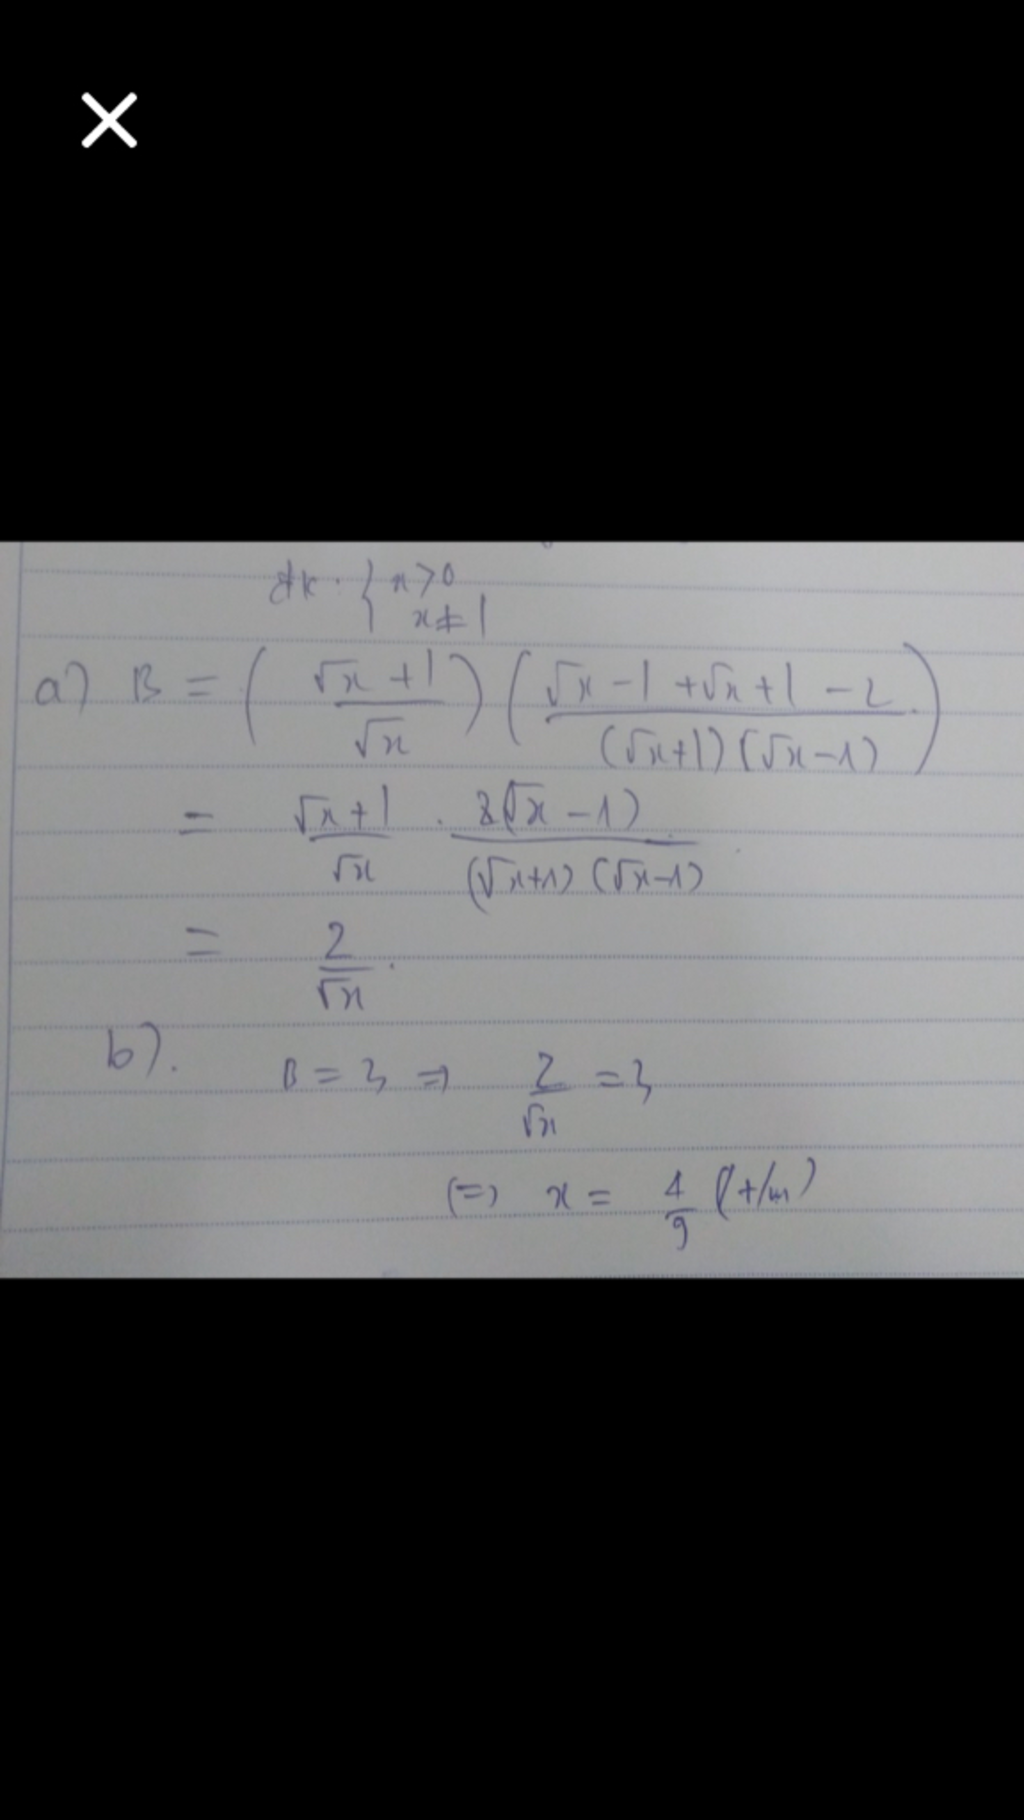 đk: { x > 0
x ≠ 1
a) B = ( (√x + 1)/√x ) ( (√x - 1 + √x + 1 - 2)/((√x+1)(√x-1)) )
= (√x + 1)/√x . 2(√x - 1)/((√x+1)(√x-1))
= 2/√x .
b).
B = 3 => 2/√x = 3
(=) x = 4/9 (t/m)